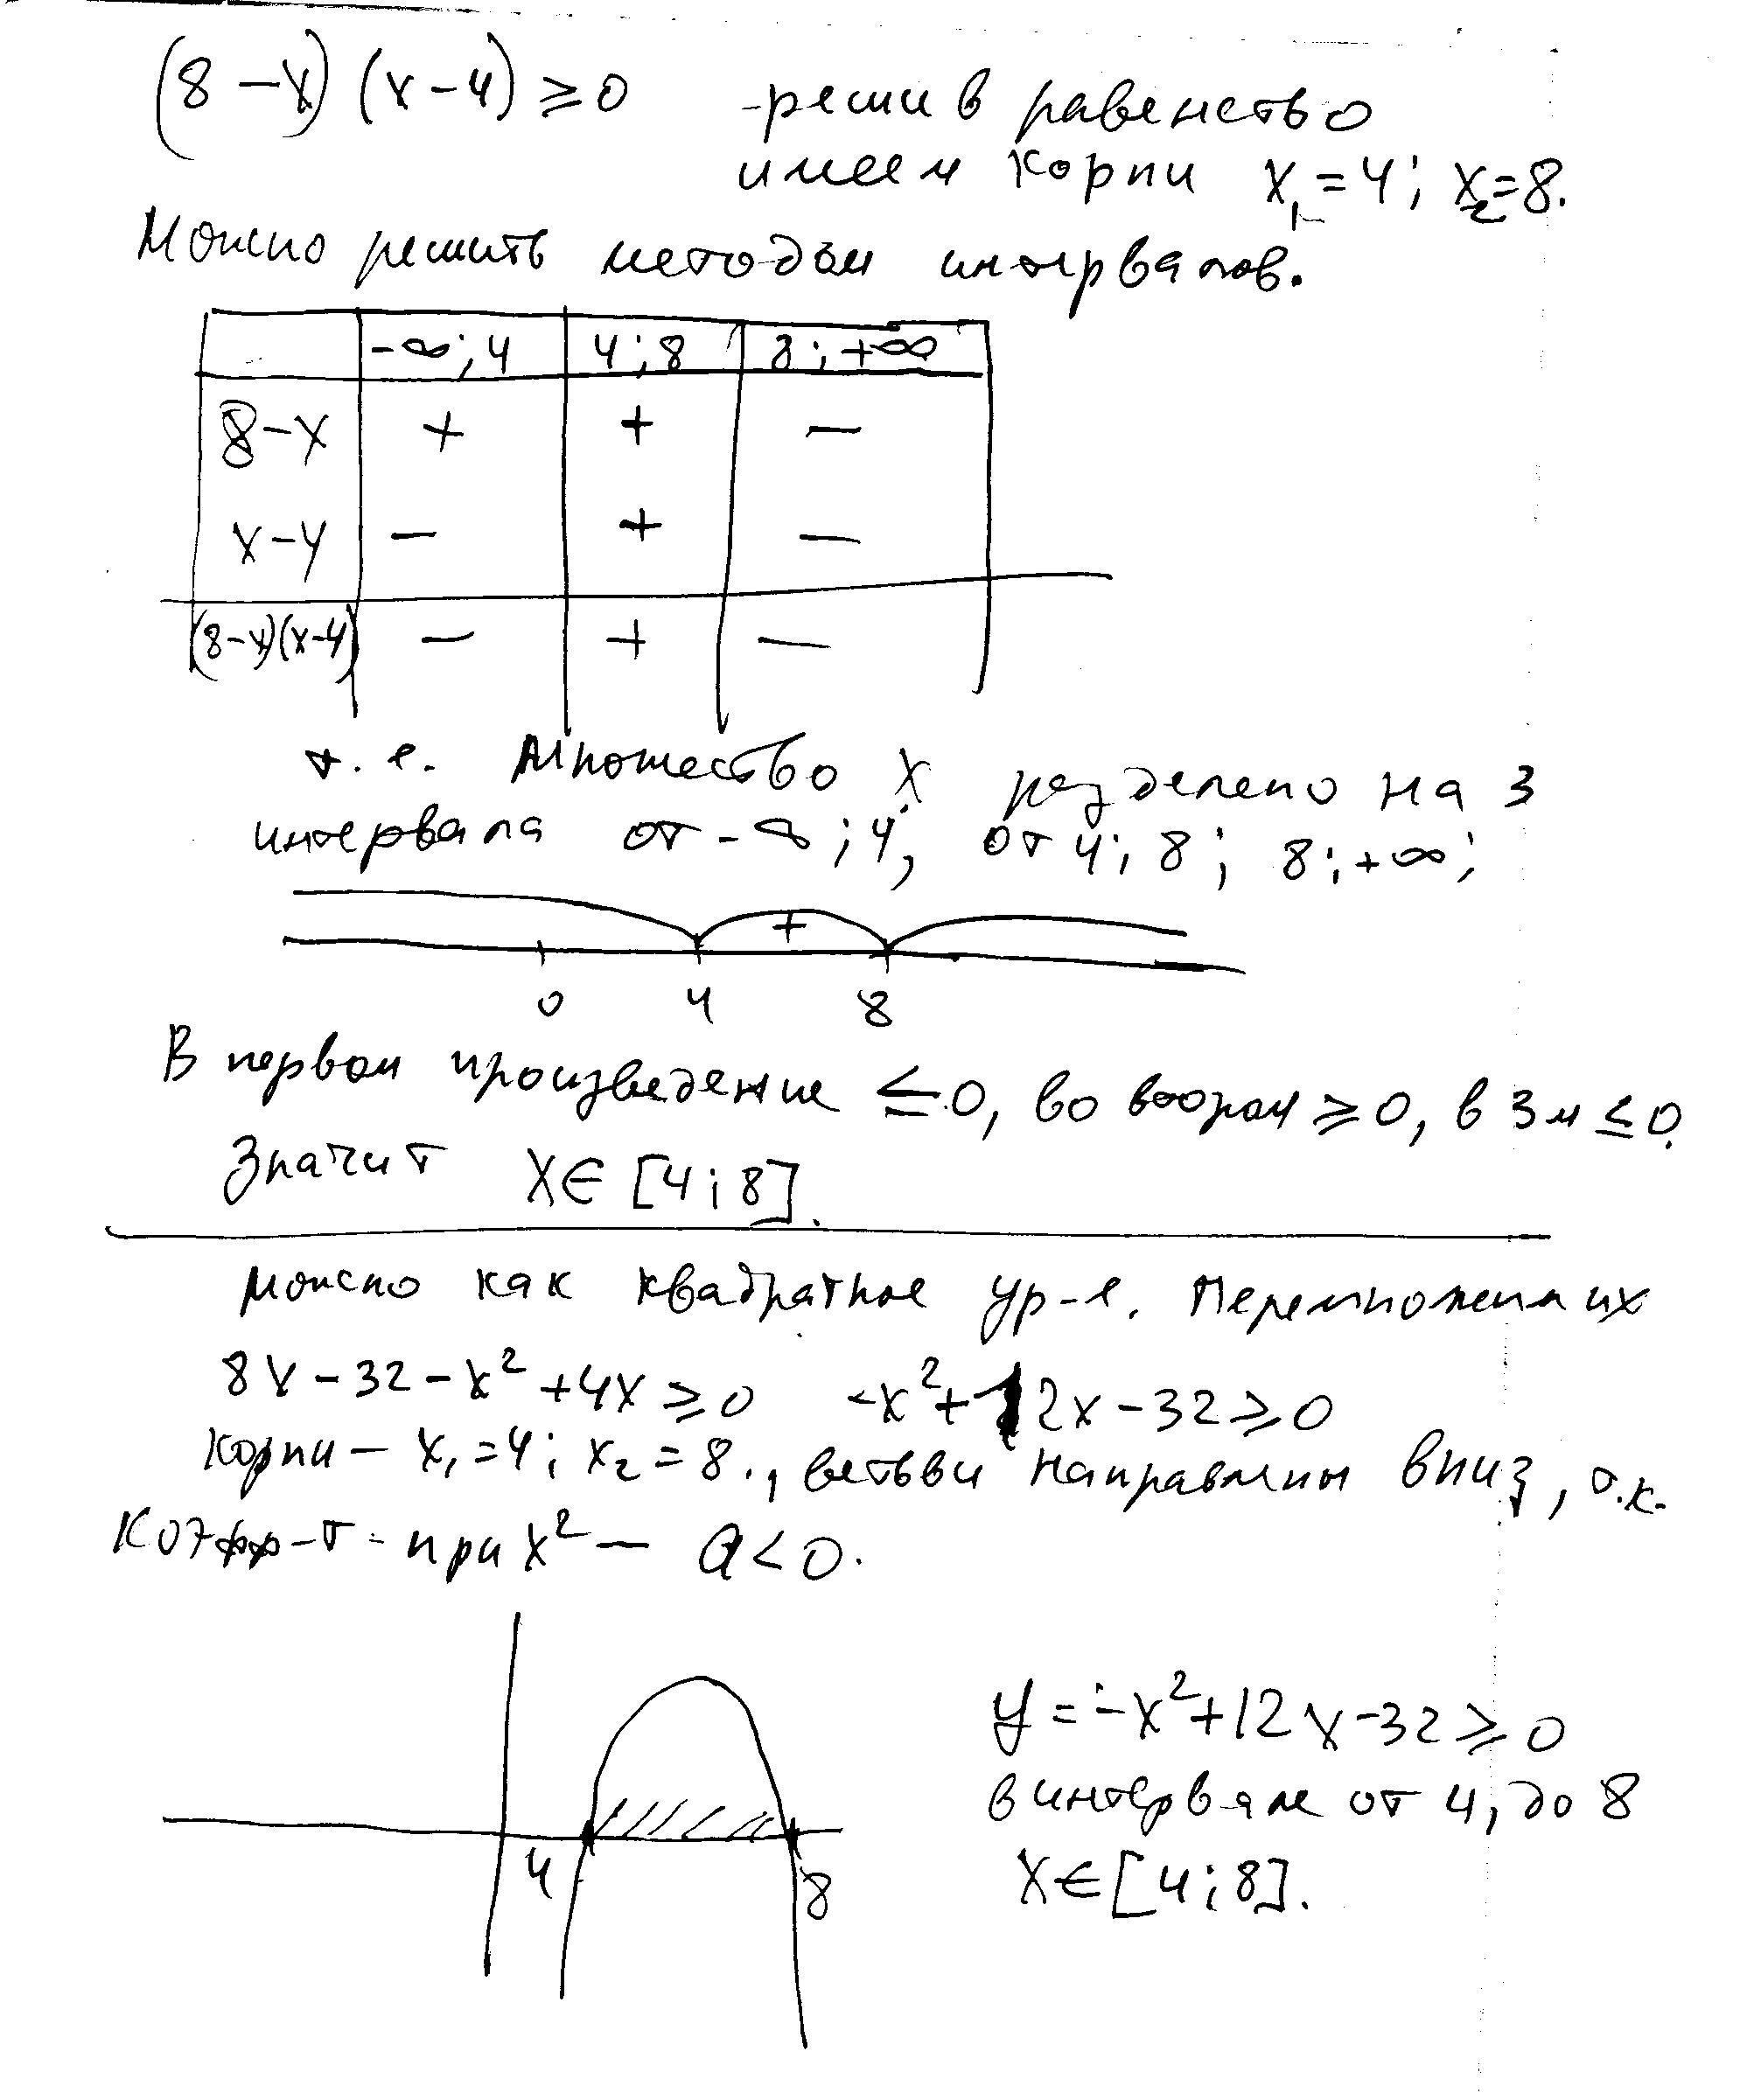 (8-x)(x-4)⩾0 -решив равенство
имеем корни x₁=4; x₂=8.
Можно решить методом интервалов.
-∞;4 4;8 8;+∞
8-x + + -
x-4 - + -
(8-x)(x-4) - + -
т.е. Множество X разделено на 3
интервала от -∞;4; от 4;8; 8;+∞;
+
0 4 8
В первом произведение ≤0, во втором ⩾0, в 3м ≤0.
Значит X∈[4;8].
Можно как квадратное ур-е. Перемножим их
8x-32-x²+4x⩾0 -x²+12x-32⩾0
Корни - x₁=4; x₂=8., ветвви направлены вниз, т.к.
Коэфф-т - при x² - a<0.
4 8
y=-x²+12x-32⩾0
в интервале от 4, до 8
X∈[4;8].